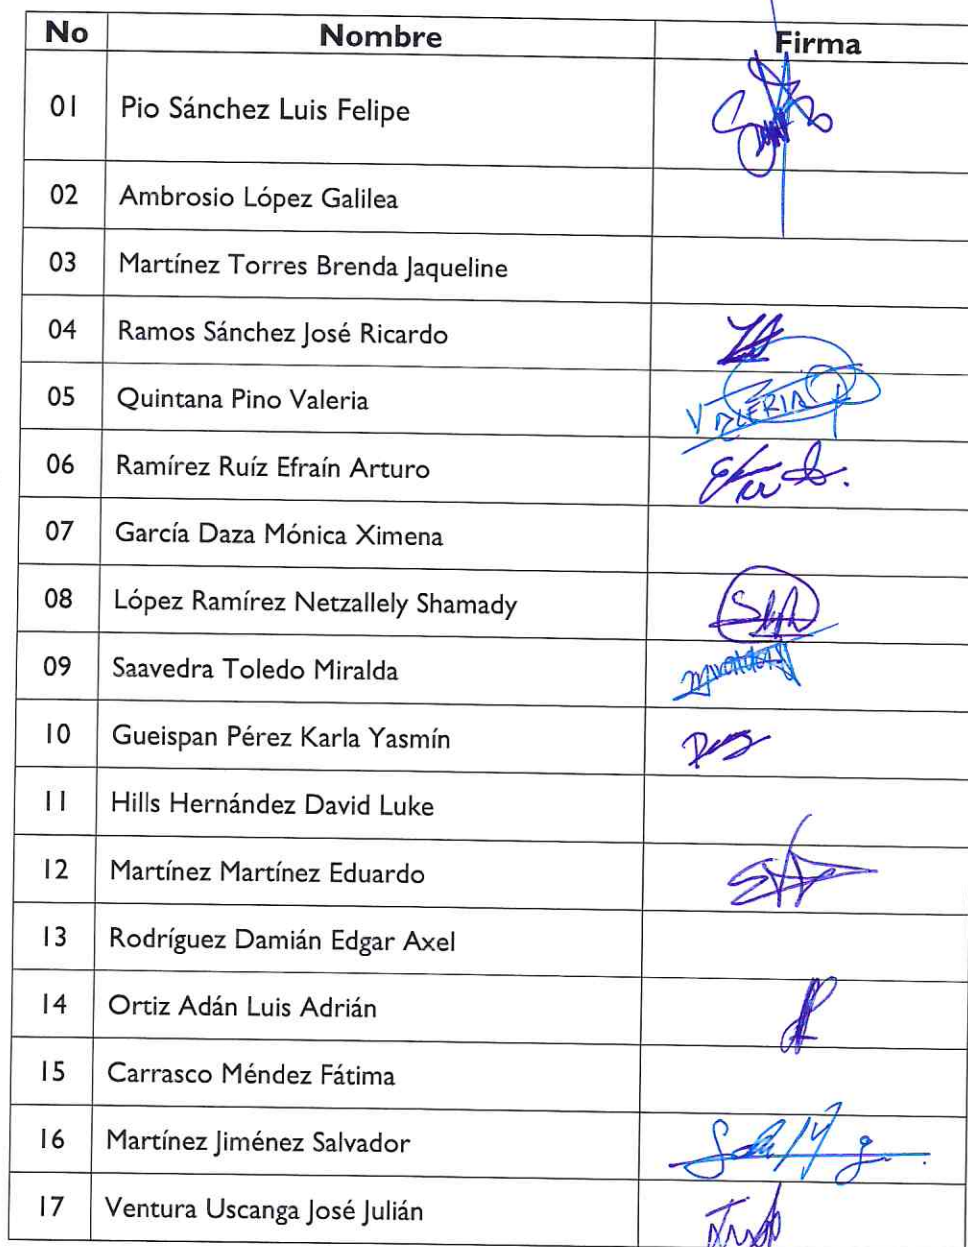 No Nombre Firma
01 Pio Sánchez Luis Felipe
02 Ambrosio López Galilea
03 Martínez Torres Brenda Jaqueline
04 Ramos Sánchez José Ricardo
05 Quintana Pino Valeria VALERIA
06 Ramírez Ruíz Efraín Arturo
07 García Daza Mónica Ximena
08 López Ramírez Netzallely Shamady
09 Saavedra Toledo Miralda
10 Gueispan Pérez Karla Yasmín
11 Hills Hernández David Luke
12 Martínez Martínez Eduardo
13 Rodríguez Damián Edgar Axel
14 Ortiz Adán Luis Adrián
15 Carrasco Méndez Fátima
16 Martínez Jiménez Salvador
17 Ventura Uscanga José Julián